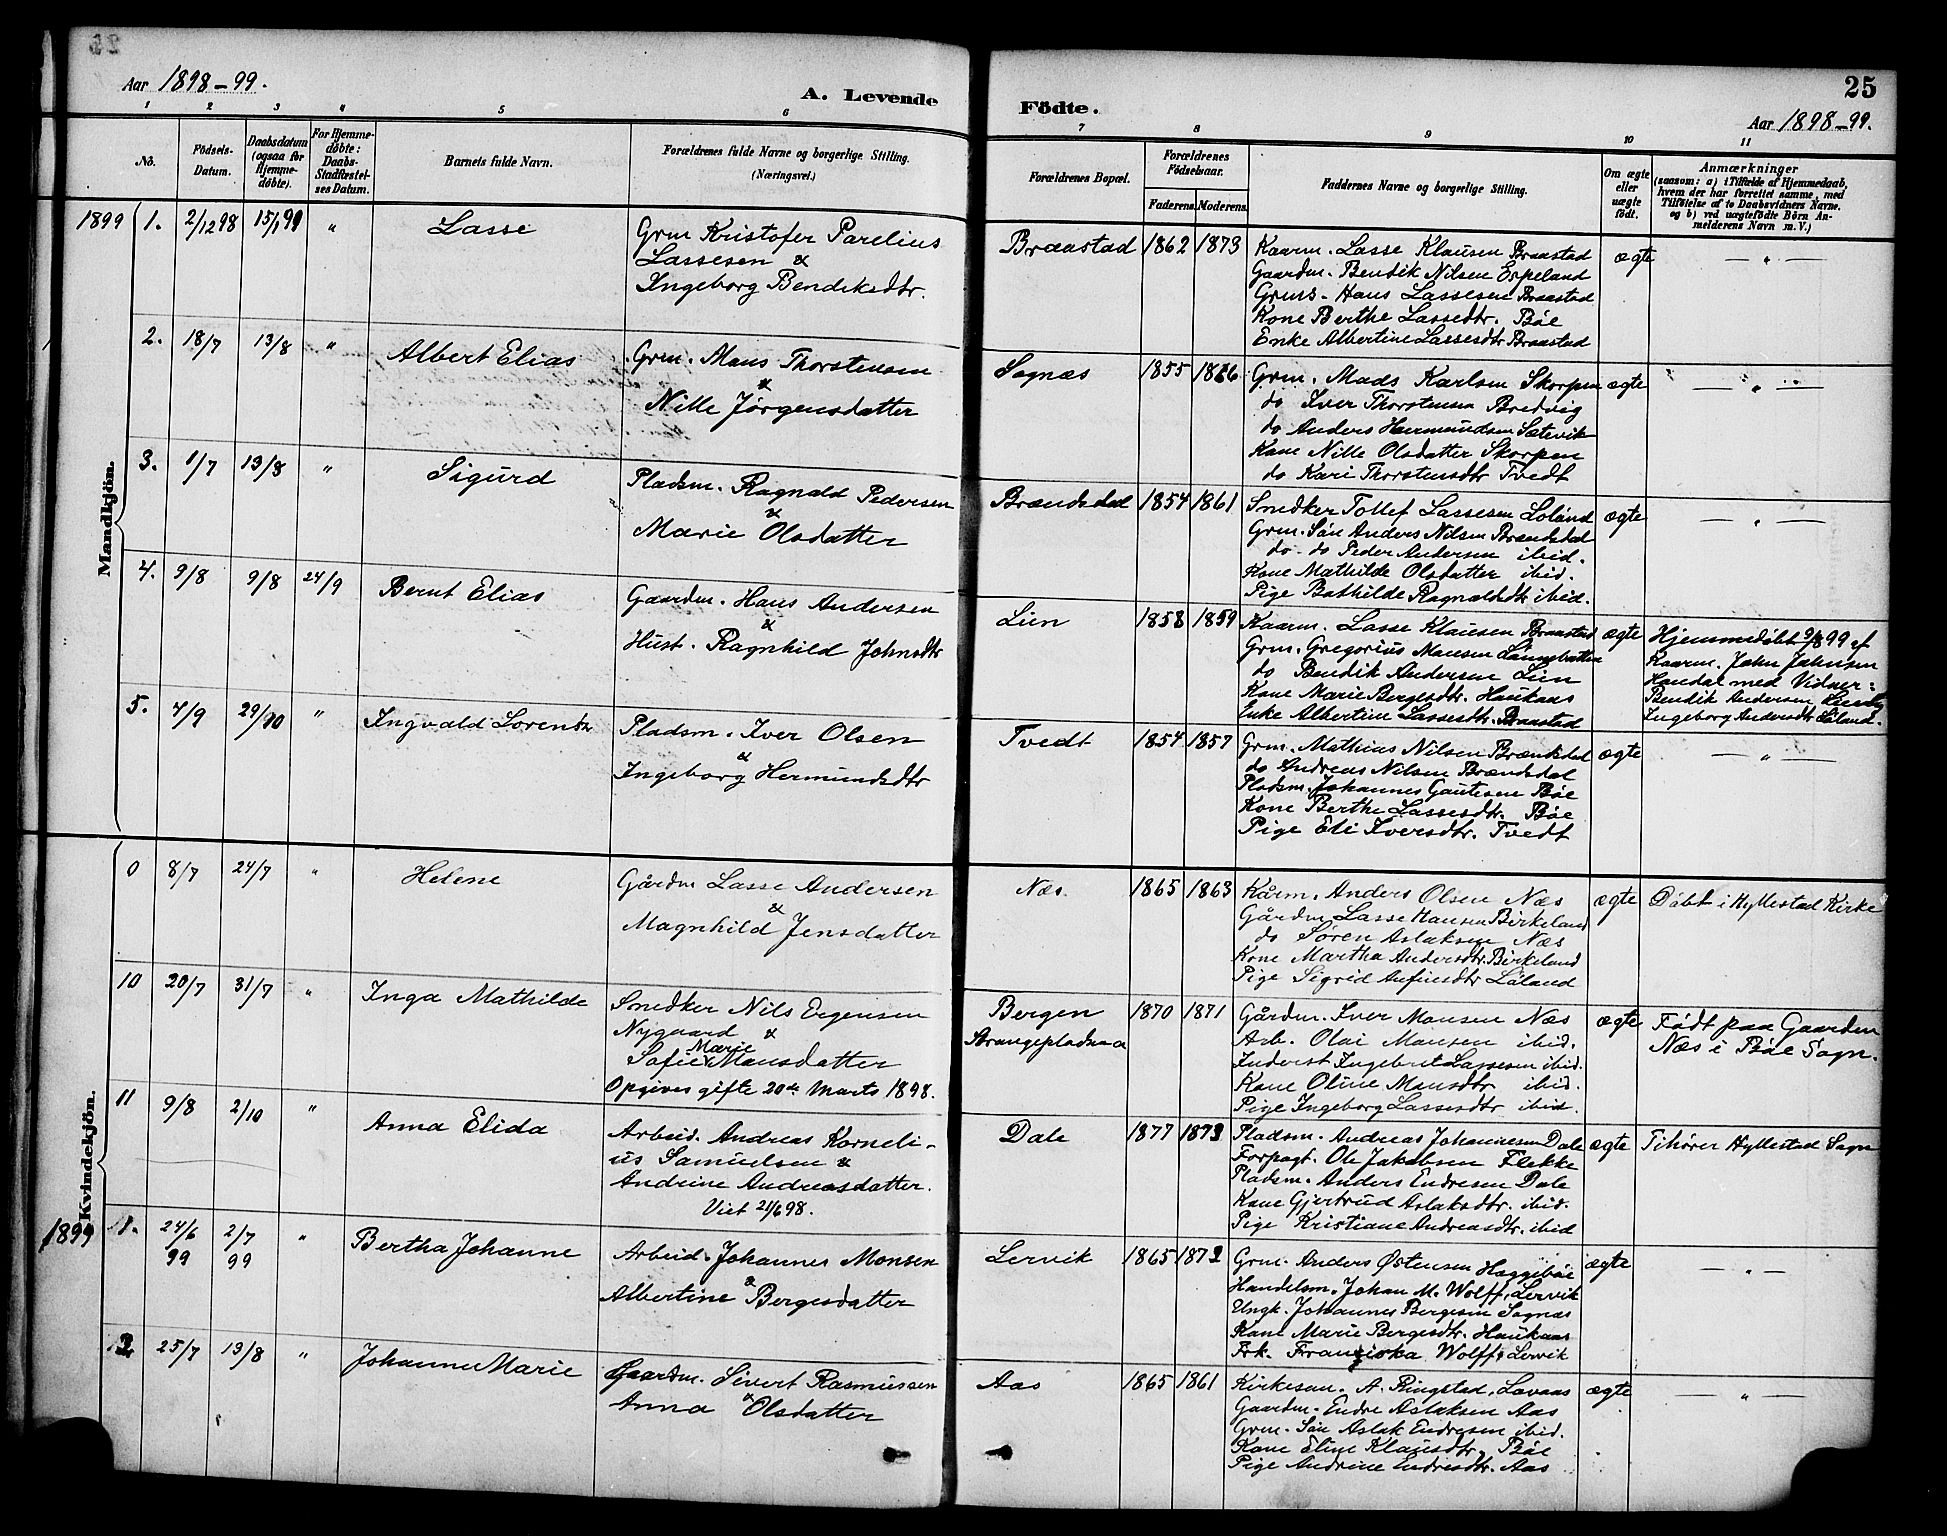 Aar 1898-99.
A. Levende
Födte.
25
Aar 1898-99.
1 2 3 4 5 6 7 8 9 10 11
No.
Födsels-Datum.
Daabsdatum (ogsaa for Hjemme-döbte).
For Hjemme-döbte: Daabs-Stadfæstel-ses Datum.
Barnets fulde Navn.
Forældrenes fulde Navne og borgerlige Stilling.
(Næringsvei.)
Forældrenes Bopæl.
Forældrenes Födselsaar.
Faderens. Moderens.
Faddernes Navne og borgerlige Stilling.
Om ægte eller uægte födt.
Anmærkninger
(saasom: a) i Tilfælde af Hjemmedaab,
hvem der har forrettet samme, med
Tilföielse af to Daabsvidners Navne.
og b) ved uægtefödte Börn An-
melderens Navn m. V.)
Mandkjön.
1899 1. 2/12 98 15/1 99 " Lasse
Grm Kristofer Parelius
Lassesen &
Ingeborg Bendiksdtr.
Braastad 1862 1873
Kaarm. Lasse Klausen Braastad
Gaardm. Bendik Nilsen Espeland
Grms. Hans Lassesen Braastad
Kone Berthe Lassedtr. Böe
Enke Albertine Lassesdtr Braastad
ægte — " —
2. 18/7 13/8 " Albert Elias
Grm. Mans Thorstensen
&
Nille Jörgensdatter
Sognæs 1855 1866
Grm. Mads Karlsen Skorpen
do Iver Thorstensen Bredvig
do Anders Hermundsen Sætevik
Kone Nille Olsdatter Skorpen
do Kari Thorstensdtr Tvedt
ægte — " —
3. 1/7 13/8 " Sigurd
Pladsm. Ragnald Pedersen
&
Marie Olsdatter
Brændsdal 1854 1861
Snedker Tollef Lassesen Loland
Grm. Sön Anders Nilsen Brændsdal
do. do Peder Andersen ibid.
Kone Mathilde Olsdatter ibid.
Pige Bathilde Ragnaldsdtr ibid.
ægte — " —
4. 9/8 9/8 24/9 Bernt Elias
Gaardm. Hans Andersen
&
Hust. Ragnhild Johnsdtr
Lien 1858 1859
Kaarm. Lasse Klausen Braastad
Grm. Gregorius Mansen
do Bendik Andersen Lien
Kone Marie Bergesdtr. Haukaas
Enke Albertine Lassesdtr. Braastad
ægte
Hjemmedöbt 9/8 99 af
Kaarm. John Johnsen
med Vidner:
Bendik Andersen Lien og
Ingeborg Andersdtr Löland.
5. 4/9 29/10 " Ingvald Lorentz
Pladsm. Iver Olsen
&
Ingeborg Hermundsdtr
Tvedt 1854 1857
Grm. Mathias Nilsen Brændsdal
do Andreas Nilsen Brændsdal
Pladsm. Johannes Gautesen Böe
Kone Berthe Lassesdtr. Böe
Pige Eli Iversdtr. Tvedt
ægte — " —
Kvindekjön.
0 8/7 24/7 " Helene
Gårdm Lasse Andersen
&
Magnhild Jensdatter
Næs. 1865 1863
Kårm. Anders Olsen Næs
Gårdm Lasse Hansen Birkeland
do Sören Aslaksen Næs
Kone Martha Andersdtr. Birkeland
Pige Sigrid Anfinsdtr Löland
ægte Döbt i Hyllestad Kirke
10 20/7 31/7 " Inga Mathilde
Snedker Nils Eugensen
Nygaard &
Marie
Sofie Mansdatter
Opgives gifte 20de Marts 1898.
Bergen
Strangepladsen
1870 1871
Gårdm. Iver Monsen Næs
Arb. Olai Monsen ibid.
Inderst Ingebret Lassesen ibid.
Kone Oline Monsdtr ibid.
Pige Ingeborg Lassesdtr ibid.
ægte
Födt paa Gaarden
Næs i Böe Sogn.
11 9/8 2/10 " Anna Elida
Arbeid. Andreas Korneli-
us Samuelsen &
Andrine Andreasdatter.
Viet 21/6 98.
Dale 1877 1873
Pladsm. Andreas Johannesen Dale
Forpagt. Ole Jakobsen Flekke
Pladsm. Anders Endresen Dale
Kone Gjertrud Aslaksdtr. ibid.
Pige Kristiane Andreasdtr. ibid
ægte Tihörer Hyllestad Sogn
1899 1. 24/6 99 2/7 99 " Bertha Johanne
Arbeid. Johannes Monsen
&
Albertine Bergesdatter
Lervik 1865 1872
Grm. Anders Östensen Hæggeböe
Handelsm. Johan M. Wolff, Lervik
Ungk. Johannes Bergesen Sognæs
Kone Marie Bergesdtr. Haukaas
Frk. Franziska Wolff, Lervik
ægte — " —
2. 25/7 13/8 " Johanne Marie
Gaardm. Sivert Rasmussen
&
Anna Olsdatter
Aas 1865 1861
Kirkesan. A. Ringstad, Lavaas
Gaardm. Endre Aslaksen Aas
Grm. Sön Aslak Endresen ibid.
Kone Eline Klausdtr. Böe
Pige Andrine Endresdtr. Aas
ægte — " —